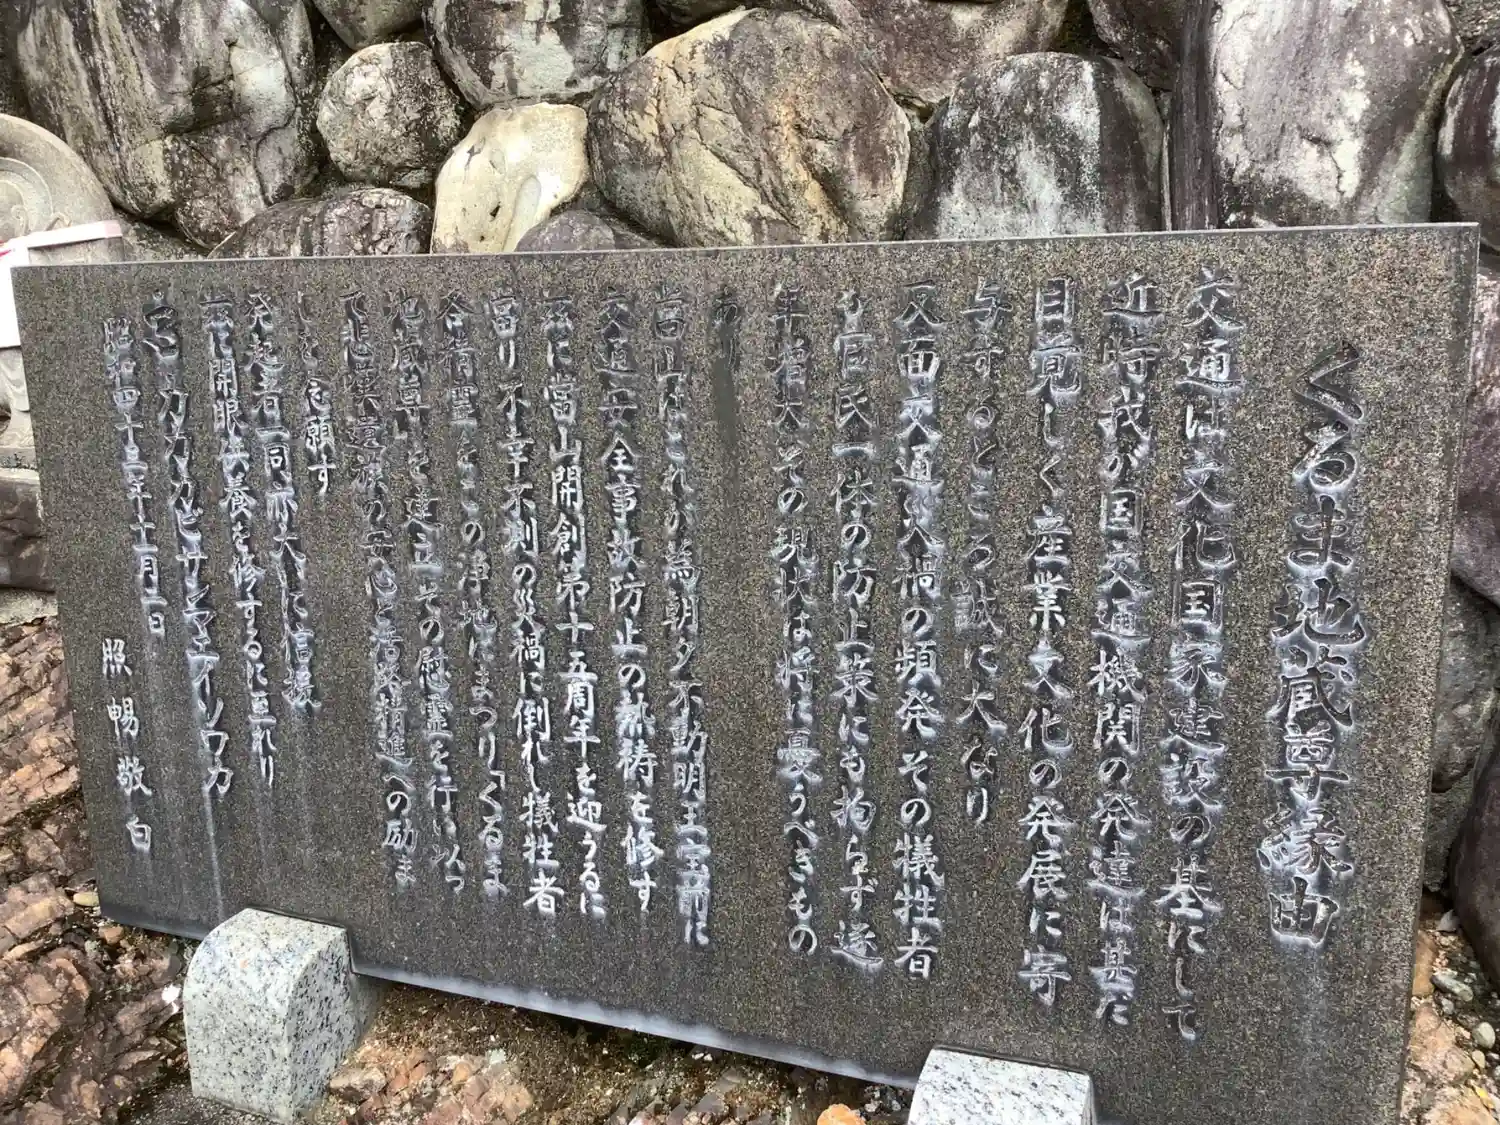 くるま地蔵尊縁由
交通は文化国家建設の基にして
近時我が国交通機関の発達は甚だ
目覚しく産業文化の発展に寄
与するところ誠に大なり
反面交通災禍の頻発その犠牲者
も官民一体の防止策にも拘らず逐
年増大その現状は将に憂うべきもの
あり
当山はこれが為朝夕不動明王宝前に
交通安全事故防止の熱祷を修す
茲に當山開創第十五周年を迎うるに
當り不幸不測の災禍に倒れし犠牲者
各精霊をこの浄地にまつり「くるま
地蔵尊」を建立その慰霊を行い以っ
て悲嘆遺族の安心と活路精進への励ま
しを念願す
発起者一同亦大に信援
茲に開眼供養を修するに至れり
カカカビサンマエイソワカ
昭和四十三年十一月三日
照暢敬白